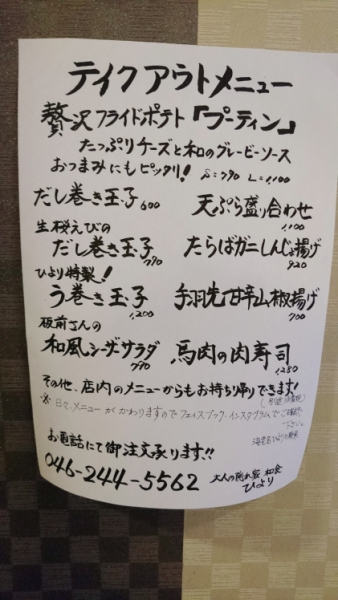 テイクアウトメニュー
贅沢フライドポテト「プーティン」
たっぷりチーズと和のグレービーソース
おつまみにもピッタリ! S=790 L=1,100
だし巻き玉子 600 天ぷら盛り合わせ 1,100
生桜えびの
だし巻き玉子 770 たらばガニしんじょ揚げ 920
ひより特製!
う巻き玉子 1,200 手羽先甘辛山椒揚げ 700
板前さんの
和風シーザーサラダ 790 馬肉の肉寿司 1,280
その他、店内のメニューからもお持ち帰りできます!
※日々メニューがかわりますのでフェイスブック、インスタグラムでご確認
下さい。
お電話にて御注文承ります!!
046-244-5562 大人の隠れ家 和食
ひより